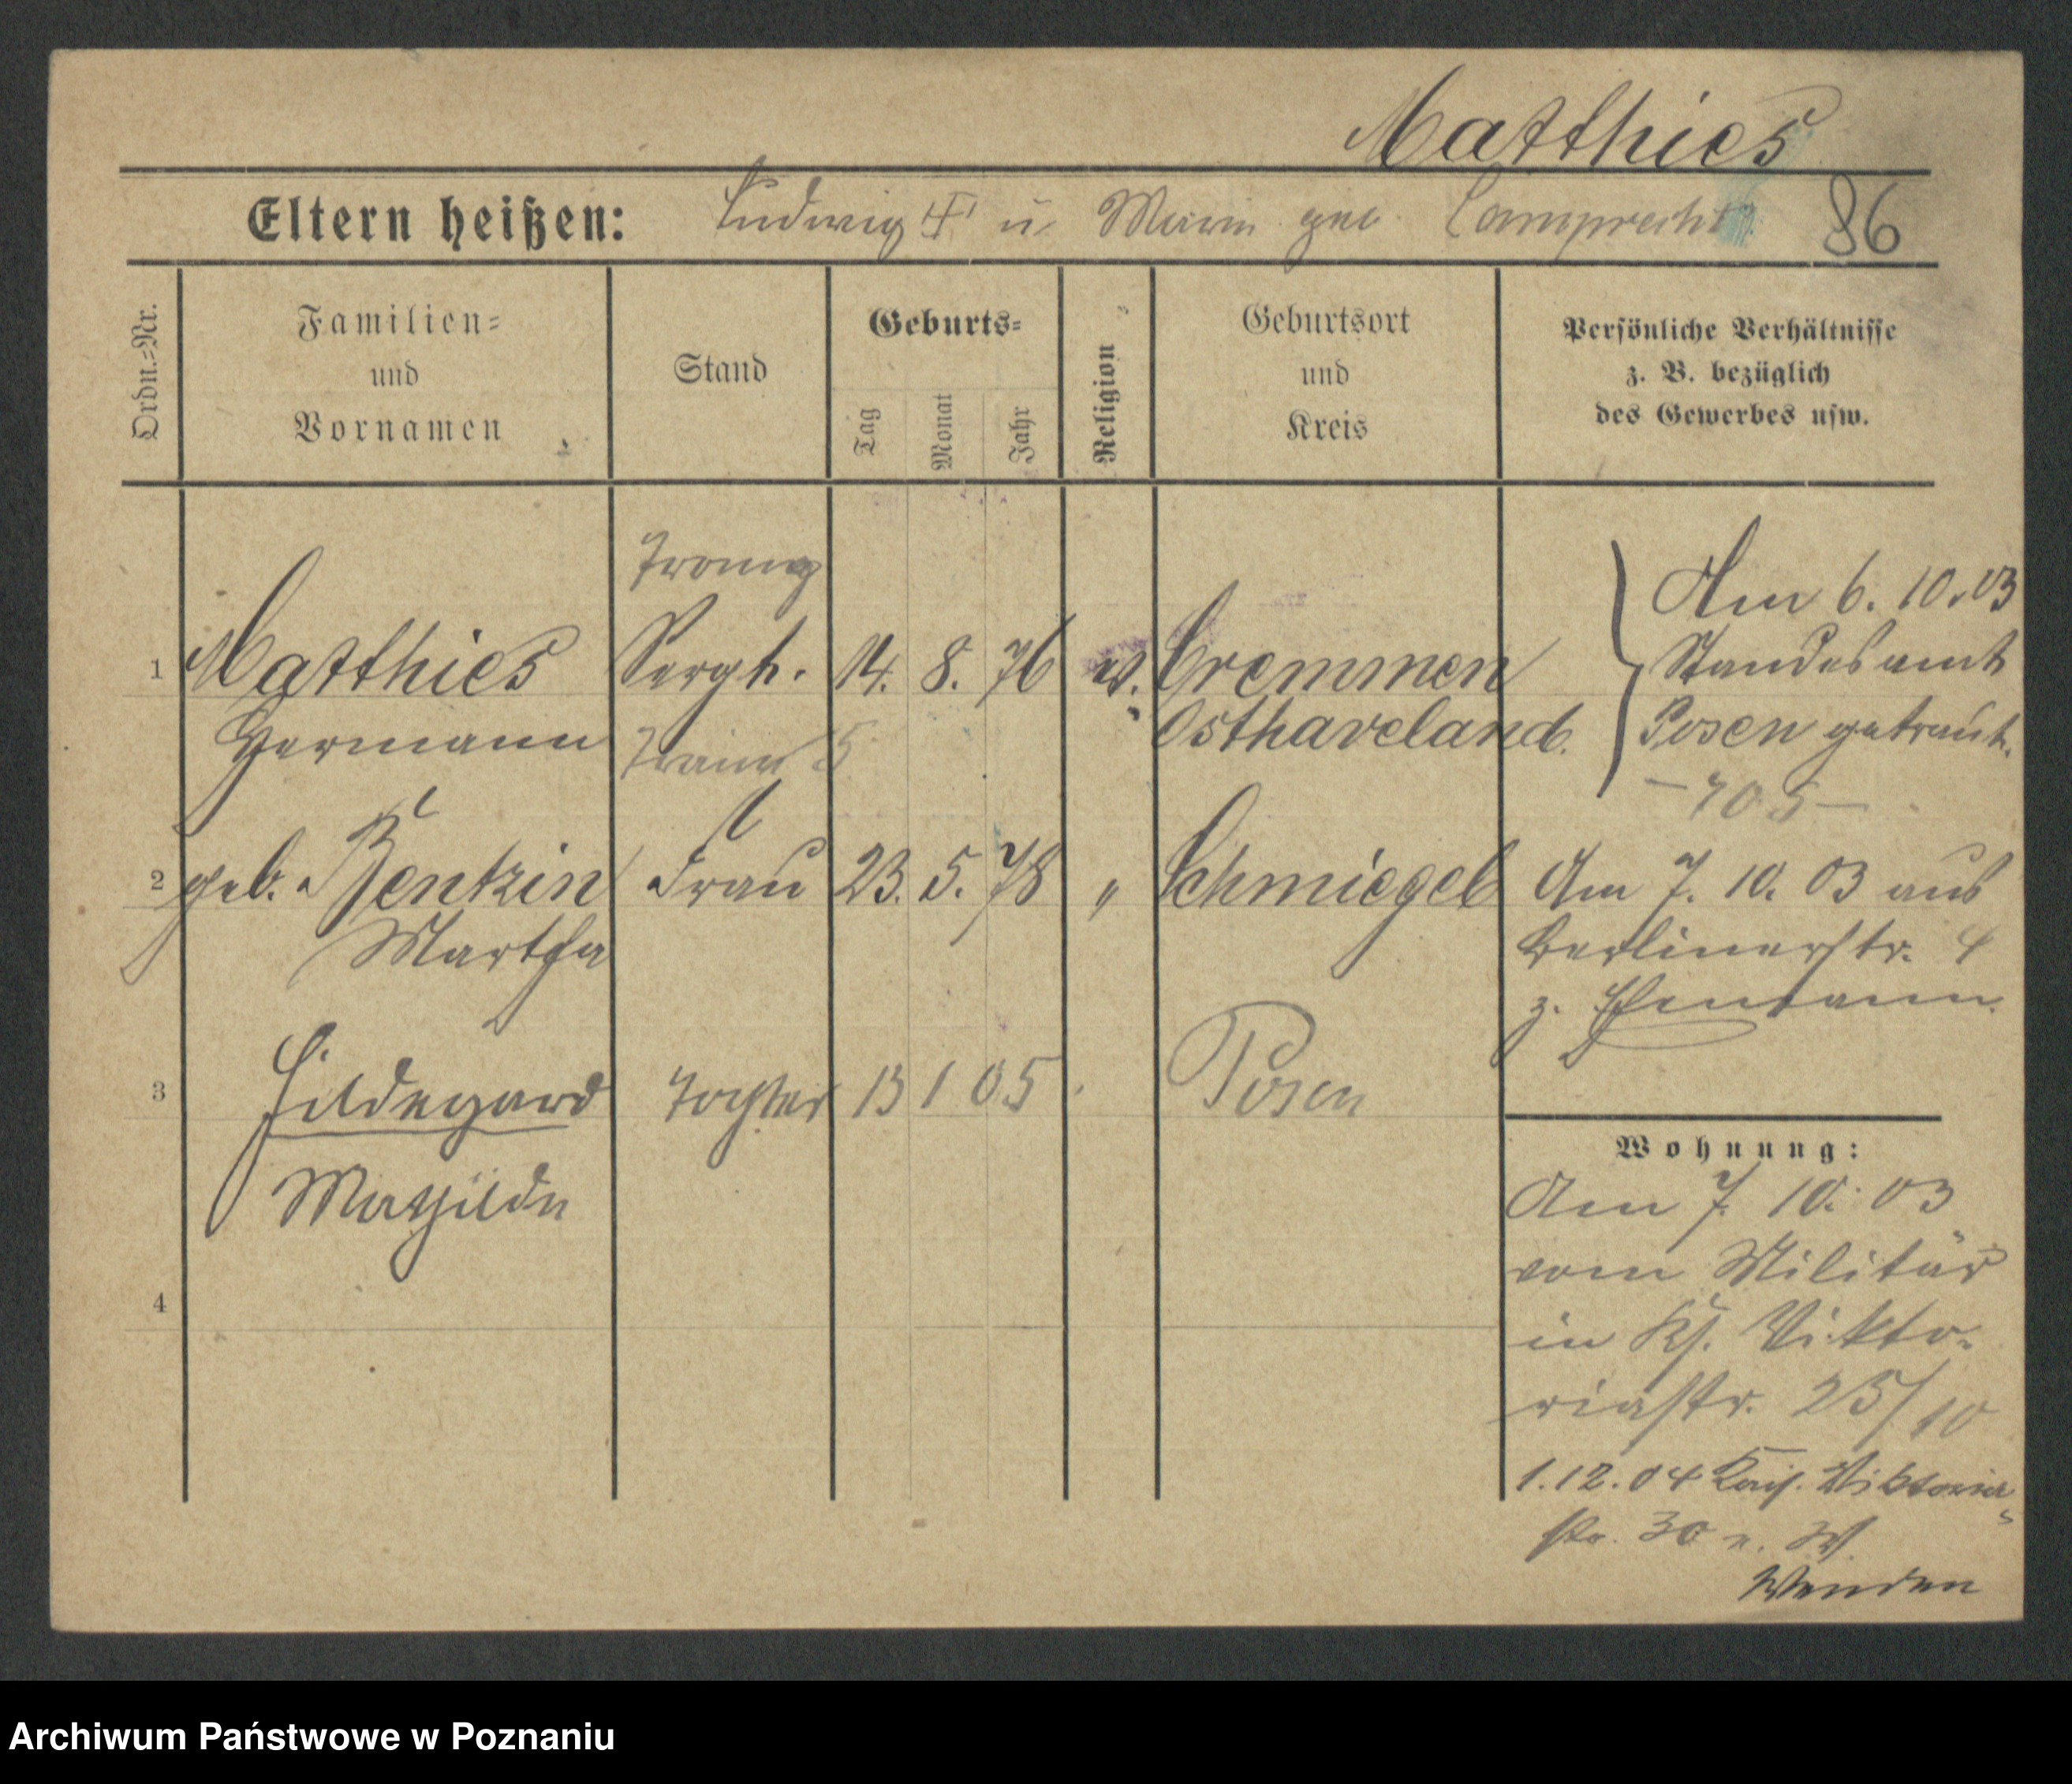 Matthies
Eltern heißen: Ludwig u. Marie geb. Lamprecht
86
Ordn.-Nr.
Familien-
und
Vornamen
Stand
Geburts-
Tag
Monat
Jahr
Religion
Geburtsort
und
Kreis
Persönliche Verhältnisse
z. B. bezüglich
des Gewerbes usw.
1 Matthies Sergt. 14. 8. 76 ev. Cremmen
Hermann Train 5 Osthaveland.
Am 6. 10. 03
Standesamt
Posen getraut.
– 705 –
2 geb. Bentzin Frau 23. 5. 78 " Schmiegel
Martha
Am 7. 10. 03 aus
Berlinerstr. 4
z. Ehemann.
3 Hildegard Tochter 13 1 05 Posen
Mathilde
4
Wohnung:
Am 7. 10. 03
vom Militär
in Ks. Vikto-
riastr. 25/10
1.12.04 Kais. Viktoria-
str. 30
Wenden
Archiwum Państwowe w Poznaniu